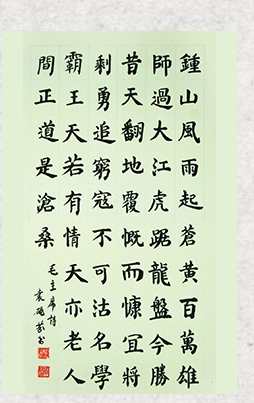 鍾山風雨起蒼黃百萬雄
師過大江虎踞龍盤今勝
昔天翻地覆慨而慷宜將
剩勇追窮寇不可沽名學
霸王天若有情天亦老人
間正道是滄桑
毛主席詩
袁